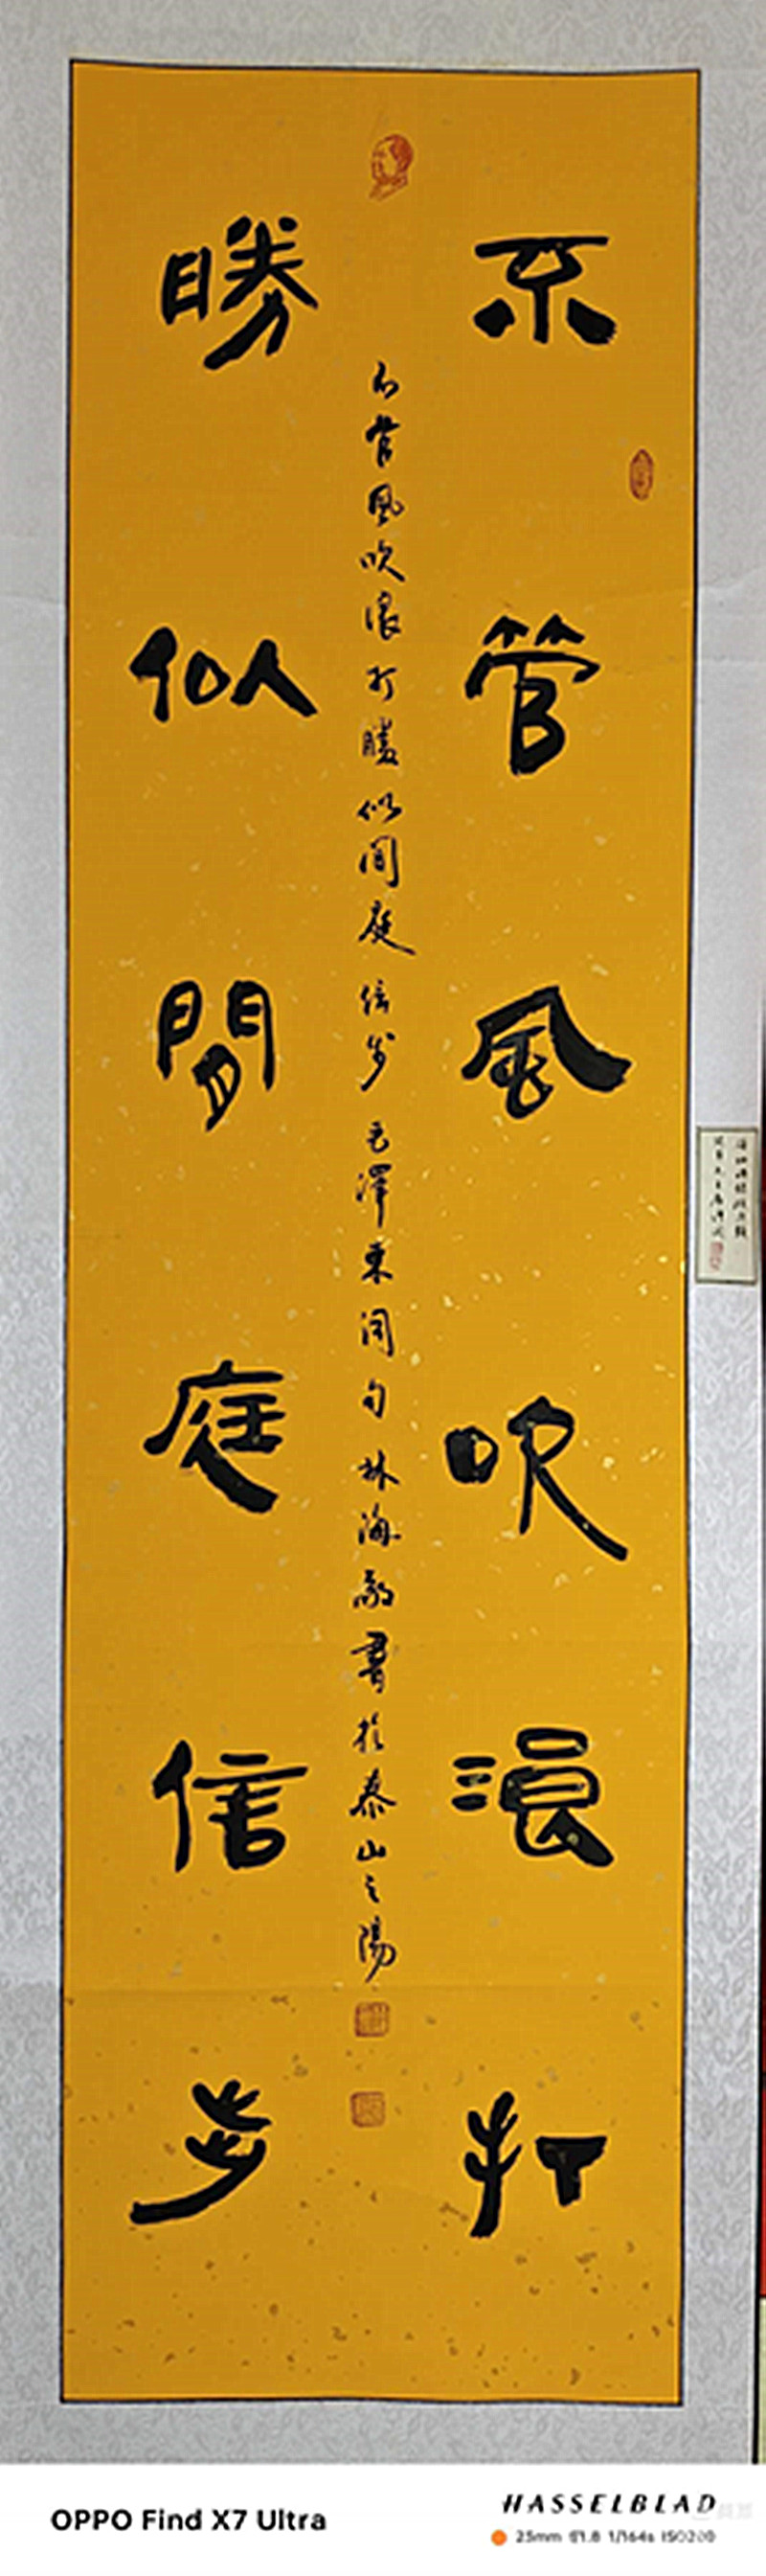 不管風吹浪打
不管風吹浪打勝似閒庭信步毛澤東詞句林海敬書於泰山之陽
勝似閒庭信步
OPPO Find X7 Ultra
HASSELBLAD
23mm f/1.8 1/164s ISO200